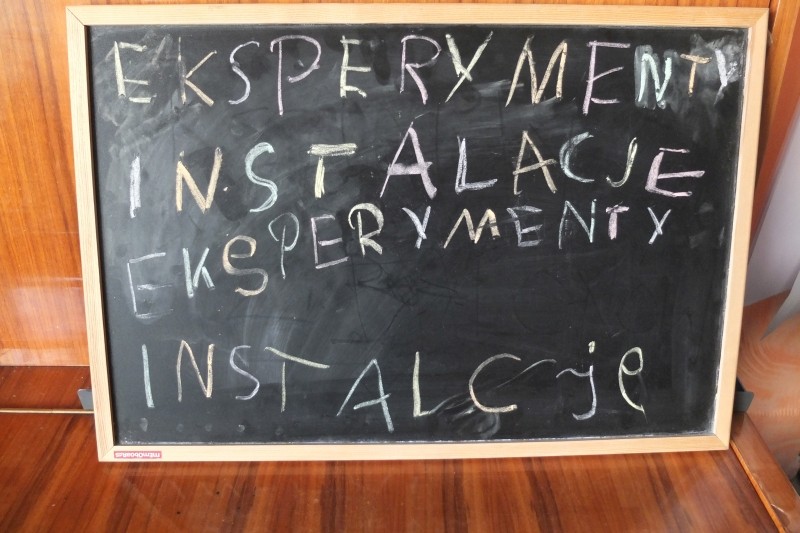 EKSPERYMENTY
INSTALACJE
EKSPERYMENTY
INSTALCje